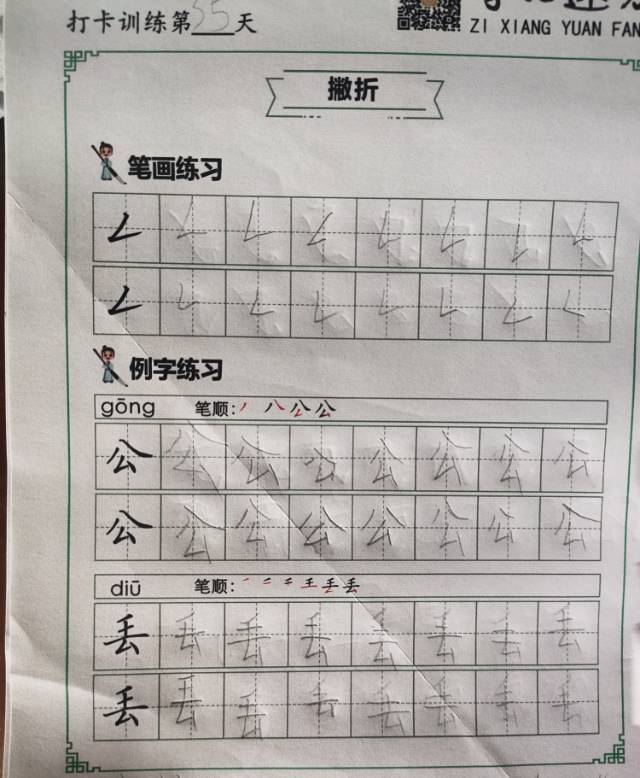 打卡训练第35天
ZI XIANG YUAN FAN
撇折
笔画练习
例字练习
gōng 笔顺:
公 公 公 公 公 公 公 公
公 公 公 公 公 公 公 公
diū 笔顺:
丢 丢 丢 丢 丢 丢 丢 丢
丢 丢 丢 丢 丢 丢 丢 丢